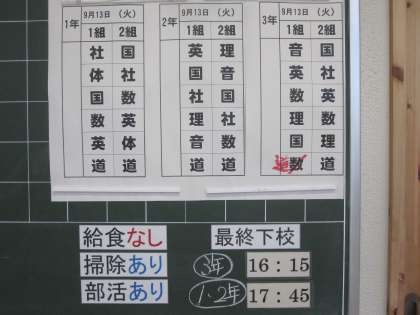 1年 9月13日 (火)
1組 2組
社 国
体 社
国 数
数 英
英 体
道 道
2年 9月13日 (火)
1組 2組
英 理
国 音
社 社
理 国
音 数
道 道
3年 9月13日 (火)
1組 2組
音 国
英 社
数 英
理 数
国 理
数 道
給食なし
掃除あり
部活あり
最終下校
3年 16：15
1・2年 17：45